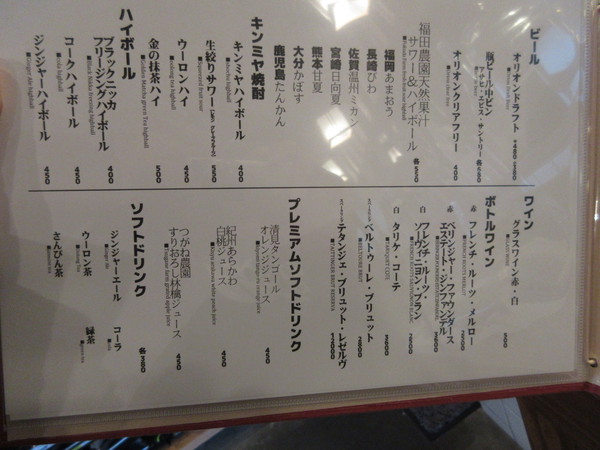 ビール
オリオンドラフト
瓶ビール中ビン
アサヒ・ヱビス・サントリー 各680
オリオンクリアフリー 400
福田農園天然果汁
サワー&ハイボール 各550
福岡あまおう
長崎びわ
佐賀温州ミカン
宮崎日向夏
熊本甘夏
大分かぼす
鹿児島たんかん
キンミヤ焼酎
キンミヤハイボール 400
生絞りサワー 550
ウーロンハイ 450
金の抹茶ハイ 500
ハイボール
ブラックニッカ
フリージングハイボール 400
コークハイボール 450
ジンジャーハイボール 450
ワイン
グラスワイン赤・白 500
ボトルワイン
赤 フレンチ・ルーツ・メルロー
赤 ベリンジャー・ファウンダース
エステート・ジンファンデル
白 フレンチ・ルーツ・
ソーヴィニヨン・ブラン
白 タリケ・コーテ
スパークリング ベルトゥーレ・ブリュット
スパークリング テタンジェ・ブリュット・レゼルヴ 12000
プレミアムソフトドリンク
清見タンゴール
オレンジジュース 450
紀州あらかわ
白桃ジュース 450
つがね農園
すりおろし林檎ジュース 450
ソフトドリンク
ジンジャーエール
コーラ 各380
ウーロン茶
緑茶
さんぴん茶